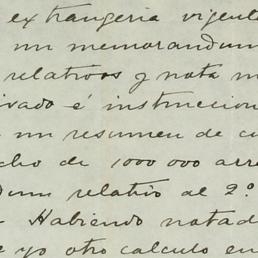 extrangeria vigente
un memorandum
relativos y nota m
ivado é instruccion
un resumen de cu
cho de 1000 000 arr
dum relativo al 2º.
Habiendo notad
yo otro calculo en